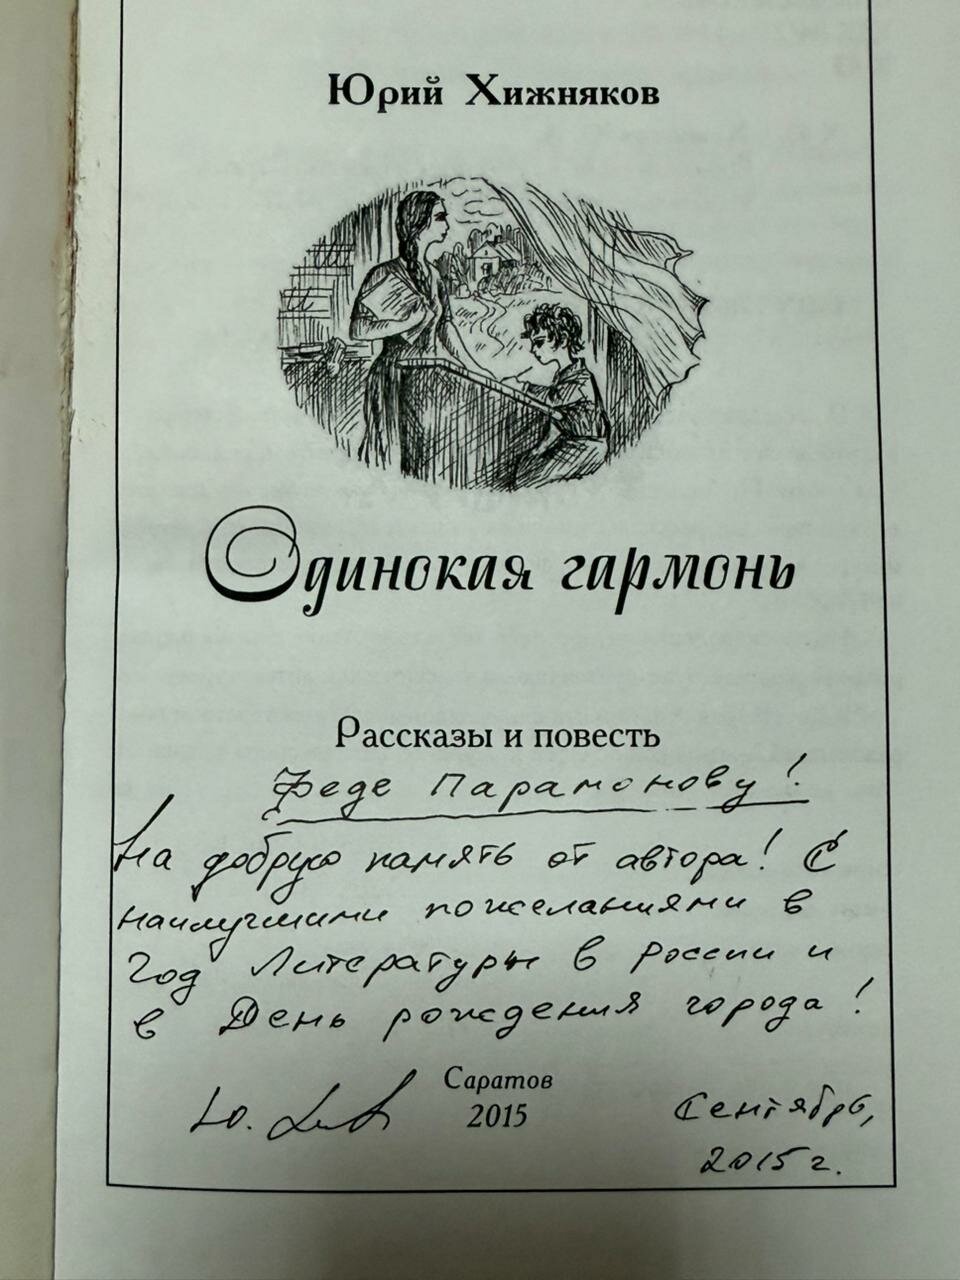 Юрий Хижняков
Одинокая гармонь
Рассказы и повесть
Феде Парамонову!
На добрую память от автора! С
наилучшими пожеланиями в
Год Литературы в России и
в День рождения города!
Саратов
2015
Ю.
Сентябрь,
2015 г.